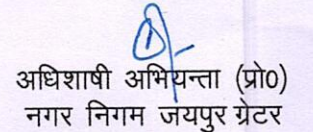 अधिशाषी अभियन्ता (प्रो0)
नगर निगम जयपुर ग्रेटर